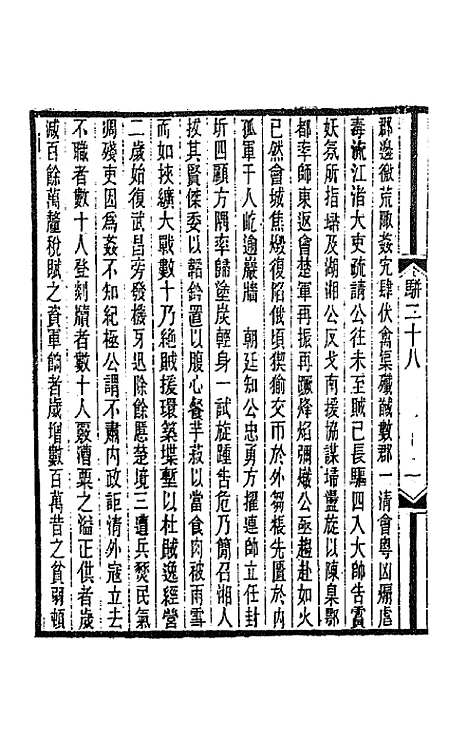 郡邊徼荒陬姦宄肆伏禽集藏馘數郡一清會粵凶煽虐
毒流江湝大吏疏請公往未至賊已長驅四入大帥告霣
妖氛所指壒及湖湘公反戈南援協謀埽盪以陳臬鄂
都率師東返會楚軍再振再蹶烽焰彌熾公亟趨赴如火
已然會城焦燬復陷俄頃猰㺄交市於外芻棖先匱於內
孤軍千人屹逾巖牆　朝廷知公忠勇方擢連帥立任封
圻四顧方隅率歸塗炭輕身一試旋踵告危乃簡召湘人
拔其賢傑委以韜鈐置以腹心餐芋菽以當食肉被雨雪
而如挾纊大戰數十乃絕賊援環築堞塹以杜賊逸經營
二歲始復武昌旁發機牙迅除餘慝楚境三遭兵燹民氣
凋殘吏因為姦不知紀極公謂不肅內政詎清外寇立去
不職者數十人登剡牘者數十人覈漕粟之溢正供者歲
減百餘萬釐稅賦之資軍餉者歲增數百萬昔之貧弱頓
駢二十八